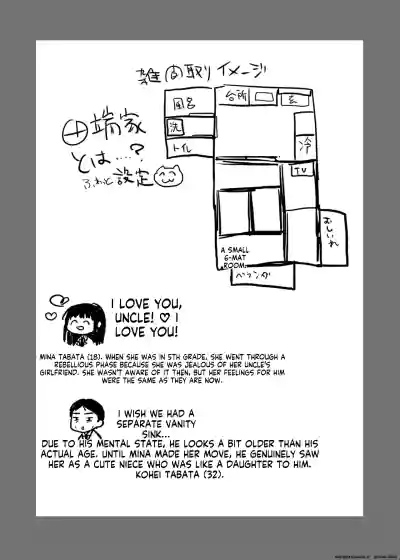 雑間取りイメージ
風呂
台所
玄
洗
冷
トイレ
TV
田端家
とは……?
ふわっと設定
おしいれ
A SMALL
6-MAT
ROOM.
ベランダ
I LOVE YOU,
UNCLE! ♡ I
LOVE YOU!
MINA TABATA (18). WHEN SHE WAS IN 5TH GRADE, SHE WENT THROUGH A
REBELLIOUS PHASE BECAUSE SHE WAS JEALOUS OF HER UNCLE'S
GIRLFRIEND. SHE WASN'T AWARE OF IT THEN, BUT HER FEELINGS FOR HIM
WERE THE SAME AS THEY ARE NOW.
I WISH WE HAD A
SEPARATE VANITY
SINK...
DUE TO HIS MENTAL STATE, HE LOOKS A BIT OLDER THAN HIS
ACTUAL AGE. UNTIL MINA MADE HER MOVE, HE GENUINELY SAW
HER AS A CUTE NIECE WHO WAS LIKE A DAUGHTER TO HIM.
KOHEI TABATA (32).